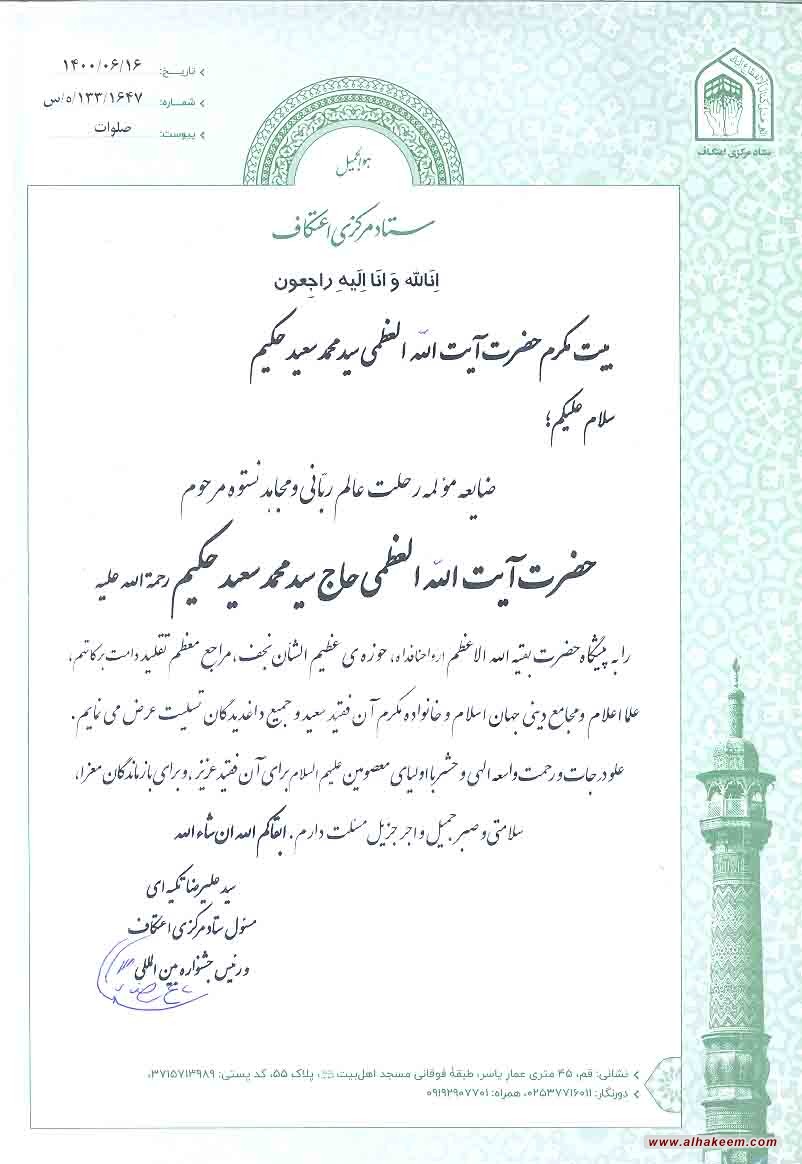 تاریـخ: ۱۴۰۰/۰۶/۱۶
شماره: ۱۳۳/۱۶۴۷/ه/س
پیوست: صلوات
ستاد مرکزی اعتکاف
هوالجمیل
ستاد مرکزی اعتکاف
اِنَالله وَ اِنَا اِلَیهِ راجِعون
بیت مکرم حضرت آیت اللّه العظمی سید محمد سعید حکیم
سلام علیکم؛
ضایعه مؤلمه رحلت عالم ربّانی و مجاهد نستوه مرحوم
حضرت آیت اللّه العظمی حاج سید محمد سعید حکیم رحمة الله علیه
را به پیشگاه حضرت بقیه الله الاعظم ارواحنافداه، حوزه ی عظیم الشأن نجف، مراجع معظم تقلید دامت برکاتهم،
علما اعلام و مجامع دینی جهان اسلام و خانواده مکرم آن فقید سعید و جمیع داغدیدگان تسلیت عرض می نمایم.
علو درجات و رحمت واسعه الهی و حشر با اولیای معصومین علیهم السلام برای آن فقید عزیز ,و برای بازماندگان معزا،
سلامتی و صبر جمیل و اجر جزیل مسئلت دارم. ابقاکم الله ان شاء الله
سید علیرضا تکیه ای
مسئول ستاد مرکزی اعتکاف
و رئیس جشنواره بین المللی
نشانی: قم، ۴۵ متری عمار یاسر، طبقهٔ فوقانی مسجد اهل‌بیت، پلاک ۵۵، کد پستی: ۳۷۱۵۷۱۳۹۸۹،
دورنگار: ۰۲۵۳۷۷۱۶۰۱۱، همراه: ۰۹۱۹۲۹۰۷۷۰۱
www.alhakeem.com